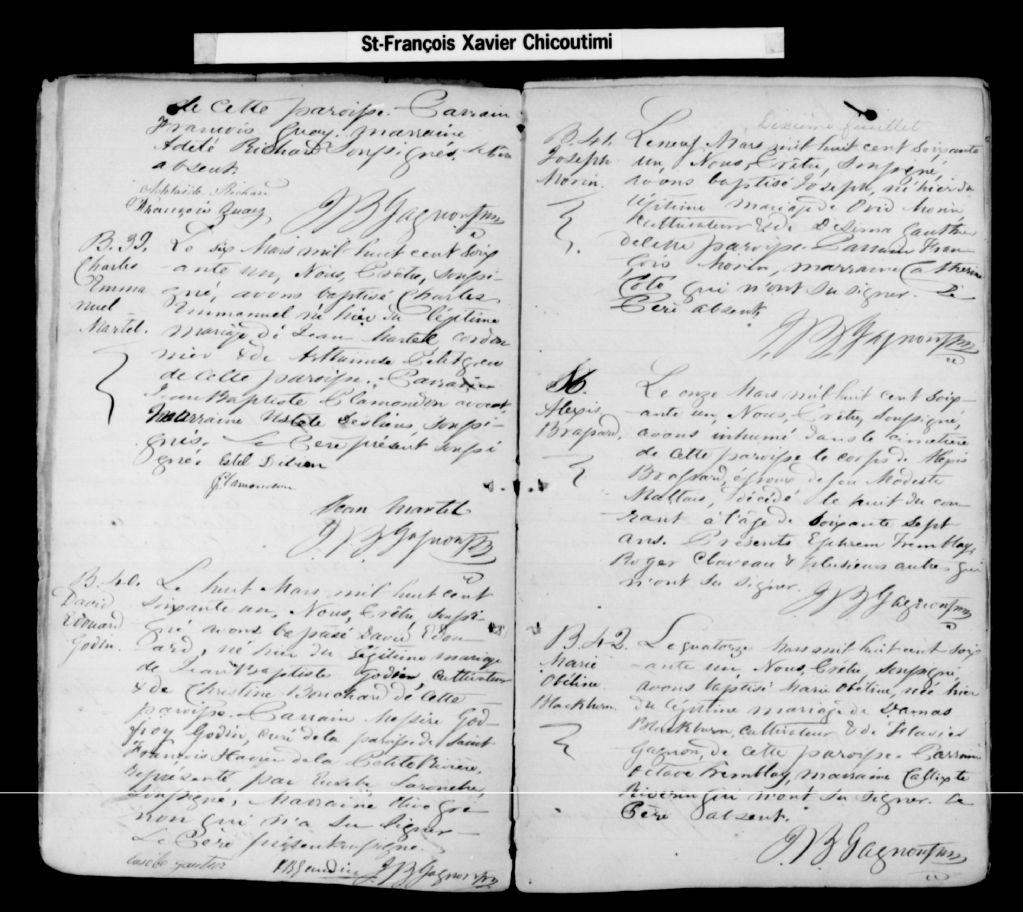 St-François Xavier Chicoutimi
de cette paroisse. Parrain
François Guay, marraine
Adèle Richard soussignés, le père
absent.
Richard
François Guay
J B Gagnon Ptre
B. 39.
Charles
Emma
nuel
Martel.
Le six Mars mil huit cent soix
-ante un, Nous, Prêtre, soussi-
gné, avons baptisé Charles
Emmanuel né hier du légitime
mariage de Jean Martel, cordon
nier & de Petitgrew
de cette paroisse. Parrain
Jean Baptiste Plamondon avocat,
marraine soussi-
gnés. Le Père présent soussi
gné.
Plamondon
Jean Martel
J B Gagnon Ptre
B. 40.
David
Edouard
Godin.
Le huit Mars mil huit cent
soixante un, Nous, Prêtre, soussi-
gné avons baptisé David Edou
ard, né hier du légitime mariage
de Jean Baptiste Godin, cultivateur
& de Christine Bouchard de cette
paroisse. Parrain Messire God-
froy Godin, curé de la paroisse de Saint
François Xavier de la Petite Rivière,
représenté par Eusèbe
soussigné, Marraine Olive Gri
non qui n'a su signer
Le Père présent soussigné.
J B Gagnon Ptre
Dixième feuillet
B. 41.
Joseph
Morin.
Le neuf Mars mil huit cent soixante
un, Nous, Prêtre, soussigné,
avons baptisé Joseph, né hier du
légitime mariage de Ovid Morin
cultivateur & de Desima Gauthier
de cette paroisse. Parrain Fran
çois Morin, marraine Catherine
Coté qui n'ont su signer. Le
Père absent.
J B Gagnon Ptre
S6.
Alexis
Brassard,
Le onze Mars mil huit cent soix-
ante un, Nous, Prêtre, soussigné,
avons inhumé dans le cimetière
de cette paroisse le corps de Alexis
Brassard, époux de feu Modeste
Maltais, décédé le huit du cou
rant à l'âge de soixante sept
ans. Présents Ephrem Tremblay,
Roger Claveau & plusieurs autres qui
n'ont su signer.
J B Gagnon Ptre
B 42.
Marie
Obéline
Blackburn
Le quatorze Mars mil huit cent soix
-ante un, Nous, Prêtre, soussigné,
avons baptisé Marie Obéline, née hier
du légitime mariage de Damas
Blackburn, cultivateur & de Flavie
Gagnon, de cette paroisse. Parrain
Octave Tremblay, marraine Callixte
Riverin qui n'ont su signer. Le
Père absent.
J B Gagnon Ptre